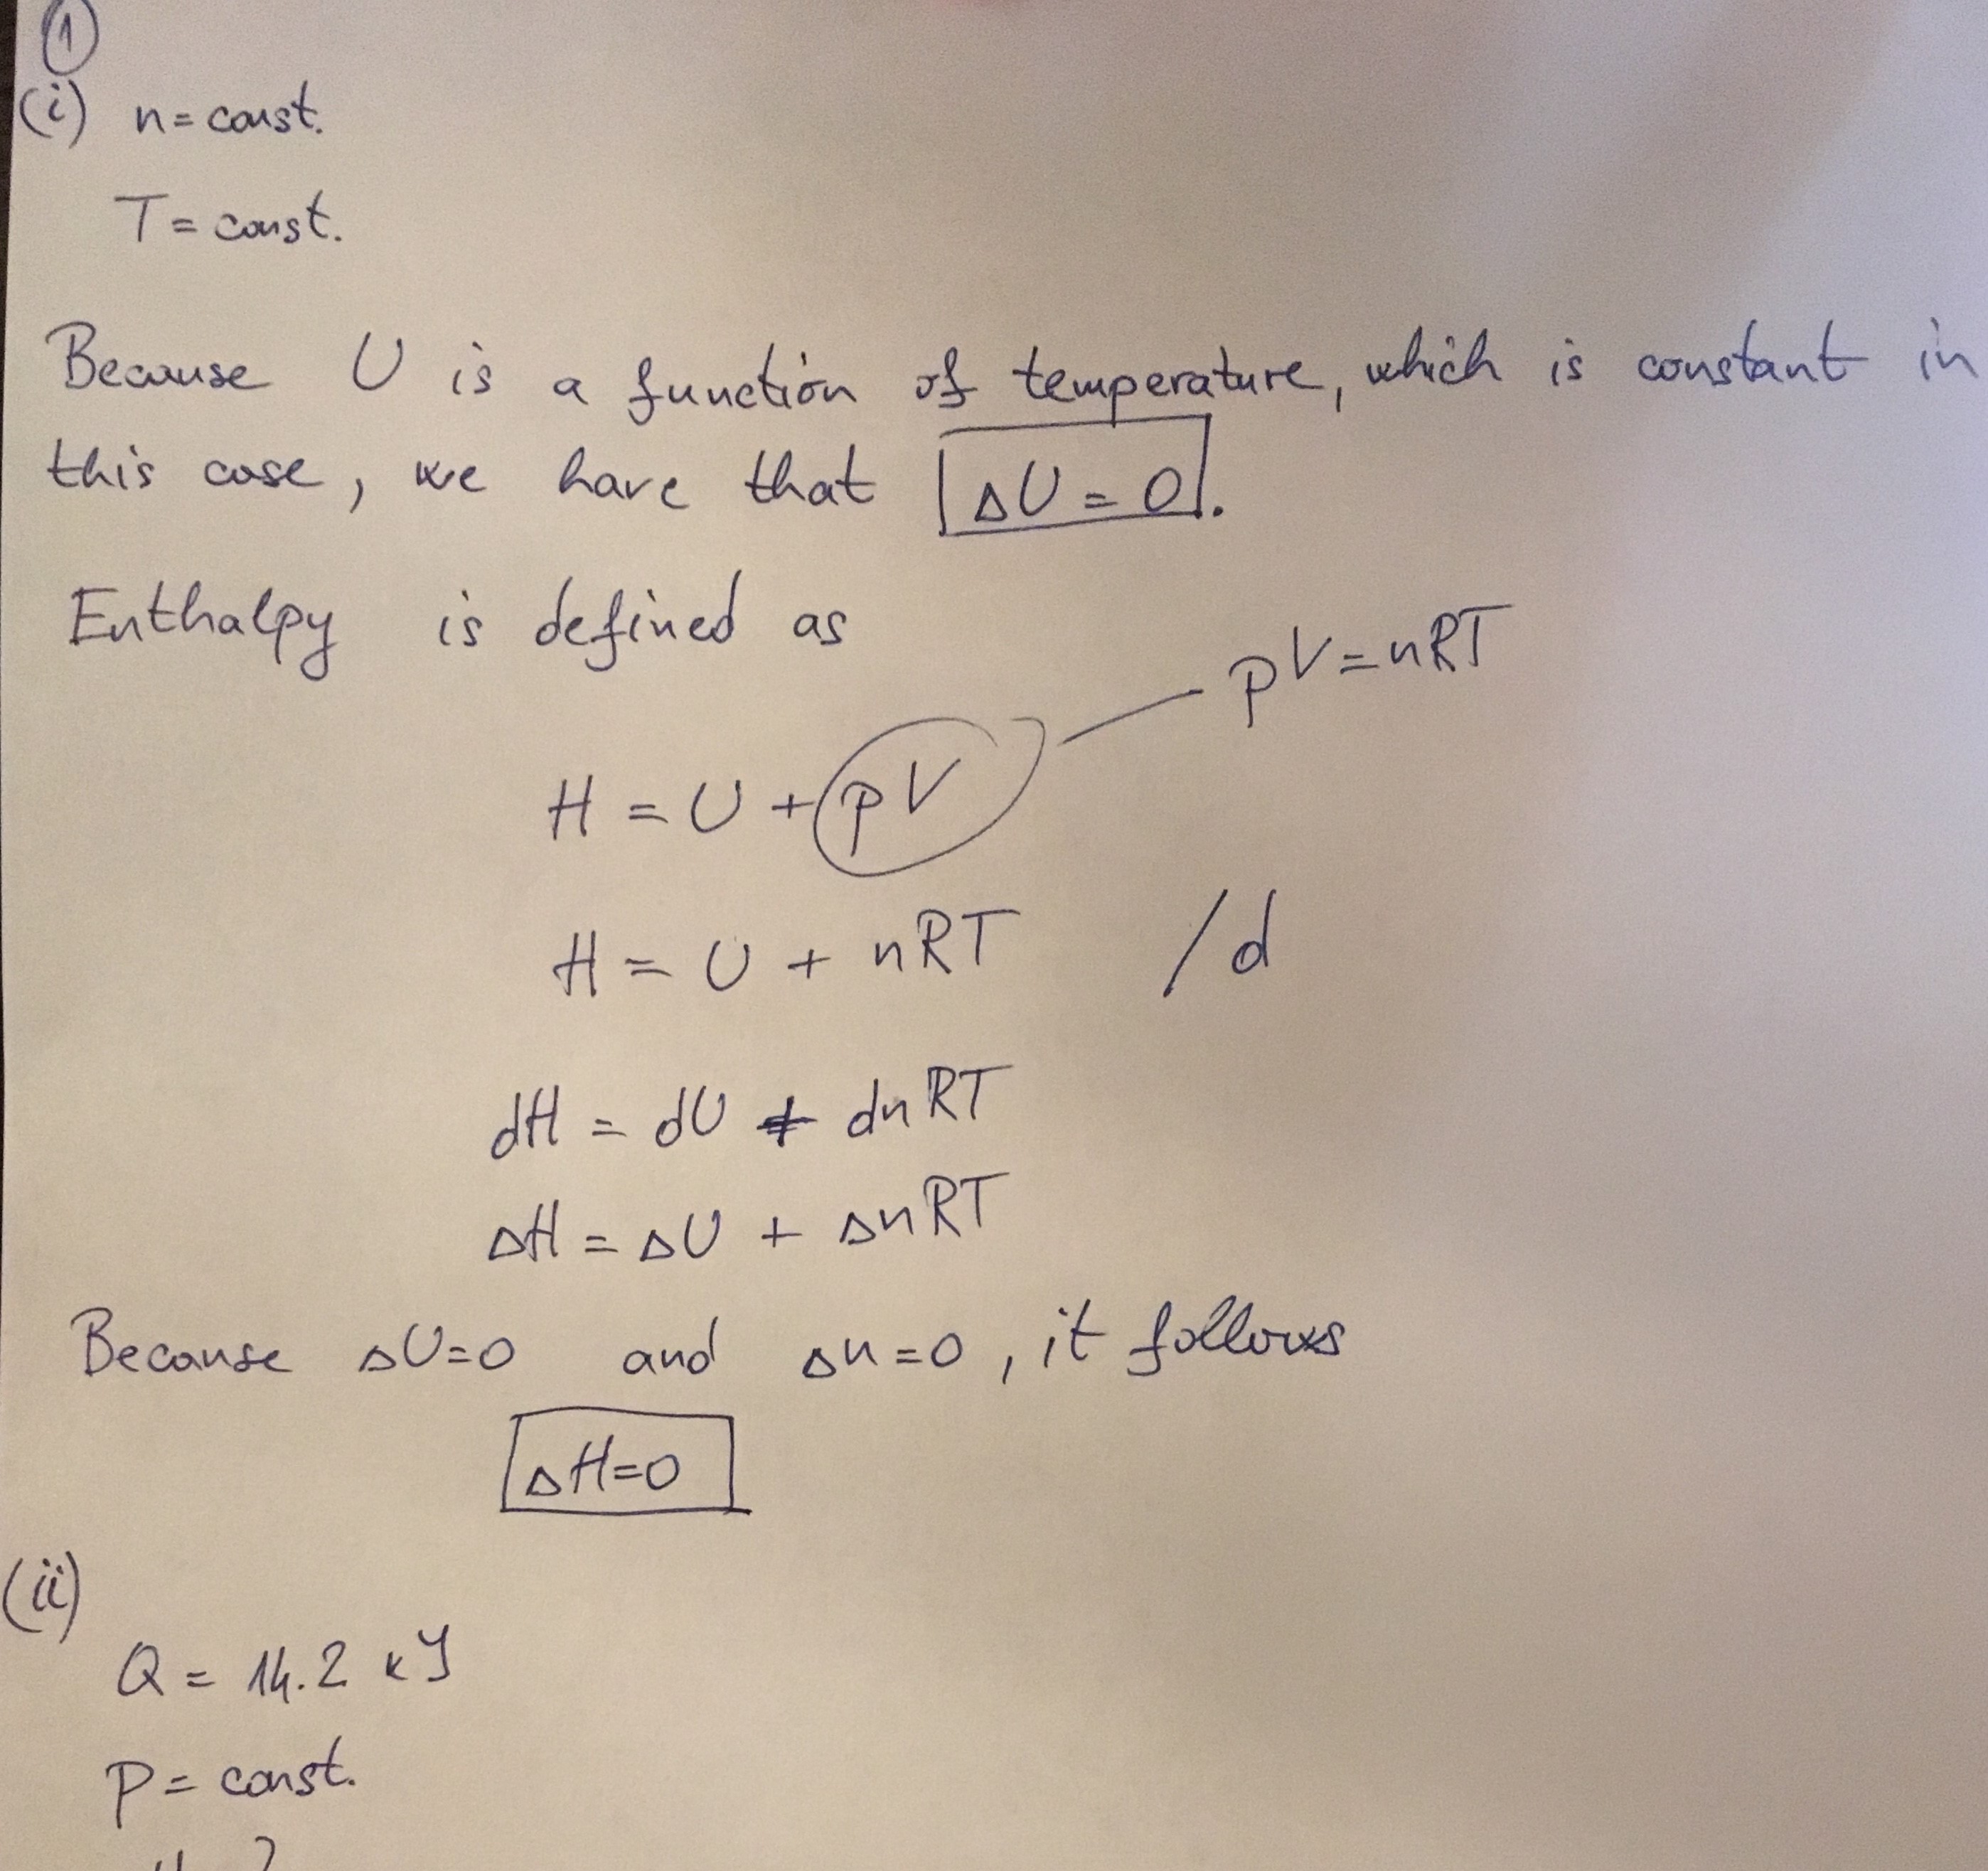 1
(i) n = const.
T = const.
Because U is a function of temperature, which is constant in
this case, we have that ΔU = 0.
Enthalpy is defined as
pV = nRT
H = U + pV
H = U + nRT /d
dH = dU + dnRT
ΔH = ΔU + ΔnRT
Because ΔU=0 and Δn=0, it follows
ΔH=0
(ii)
Q = 14.2 kJ
p = const.